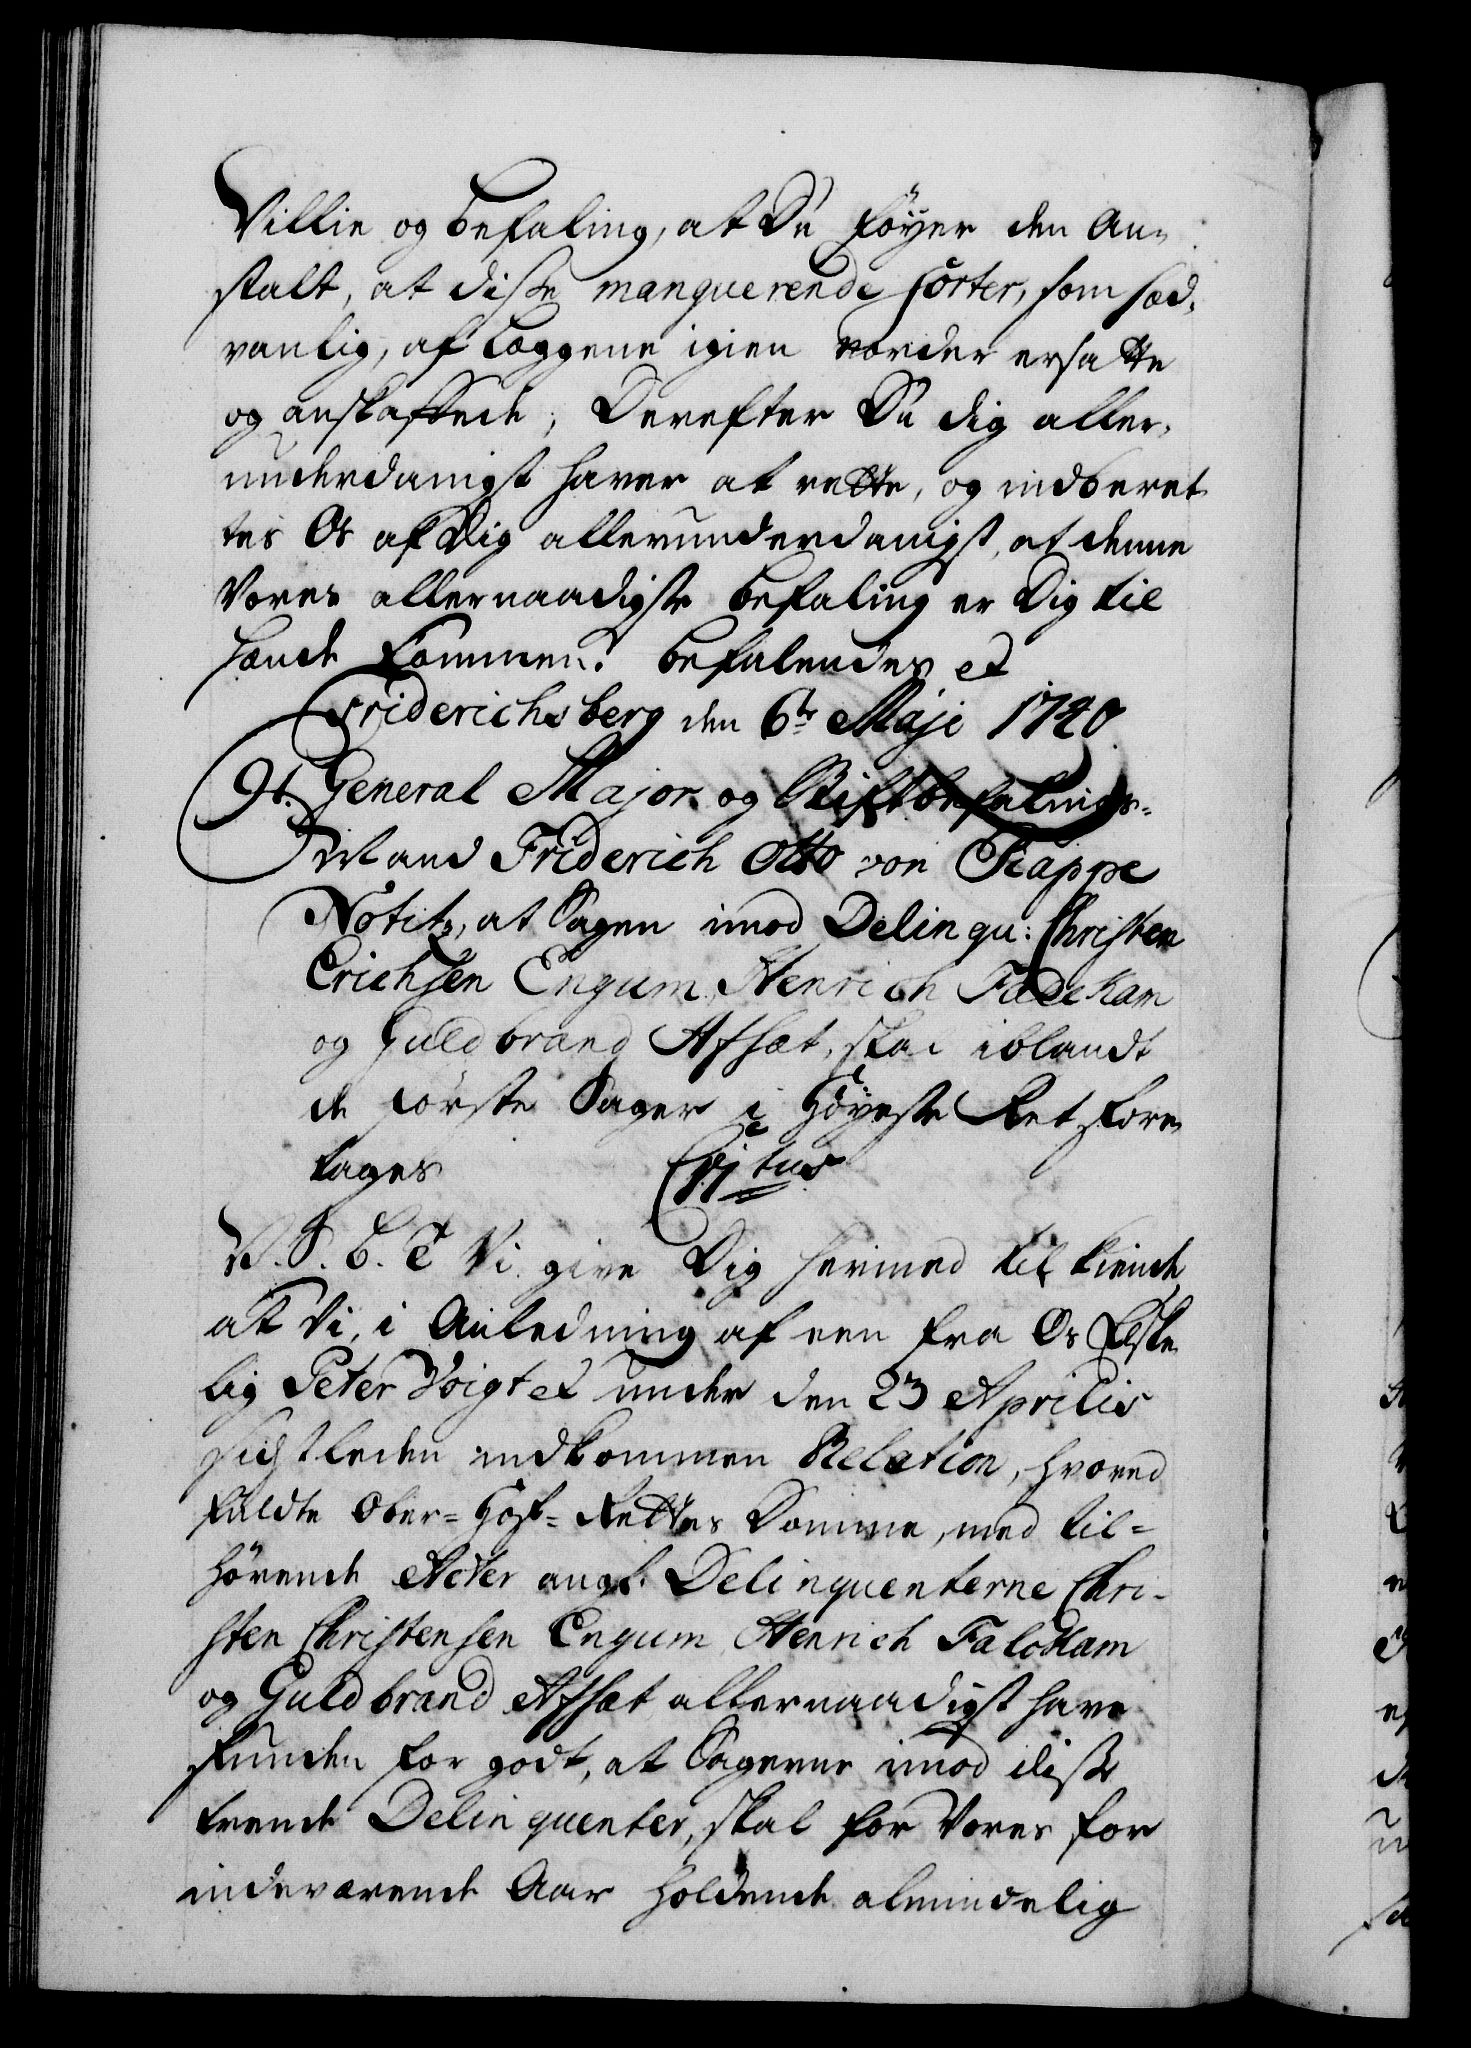 Villie og Befaling, at Du føyer den An-
stalt, at disse manquerende Sorter, som sæd-
vanlig, af Læggene igien vorder ersatte
og anskaffede; Derefter Du dig aller-
underdanigst haver at rette, og indberet-
tes Os af Dig allerunderdanigst, at denne
Vores allernaadigste Befaling er Dig til
hænde kommen. Befalendes et
Friderichsberg den 6te Maji 1740
91. General Major og Stiftbefalings-
Mand Friderich Otto von Rappe
Notitz, at Sagen imod Delinqu: Christen
Erichsen Engum, Henrich Fadekam
og Guldbrand Afsæt, skal iblandt
de første Sager i Høyeste Ret fore-
tages
V. S. B. T Vi give Dig hermed til kiende
at Vi, i Anledning af een fra Os Elske-
lig Peter Voigt et under den 23 Aprilis
sidstleden indkommen Relation, hvorved
fulde Ober-Hof-Rettes Domme, med til-
hørende Acter angl. Delinquenterne Chri-
sten Christensen Engum, Henrich Falckam
og Guldbrand Afsæt allernaadigst have
funden for godt, at Sagerne imod disse
trende Delinquenter, skal for Vores for
indeværende Aar holdende almindelig